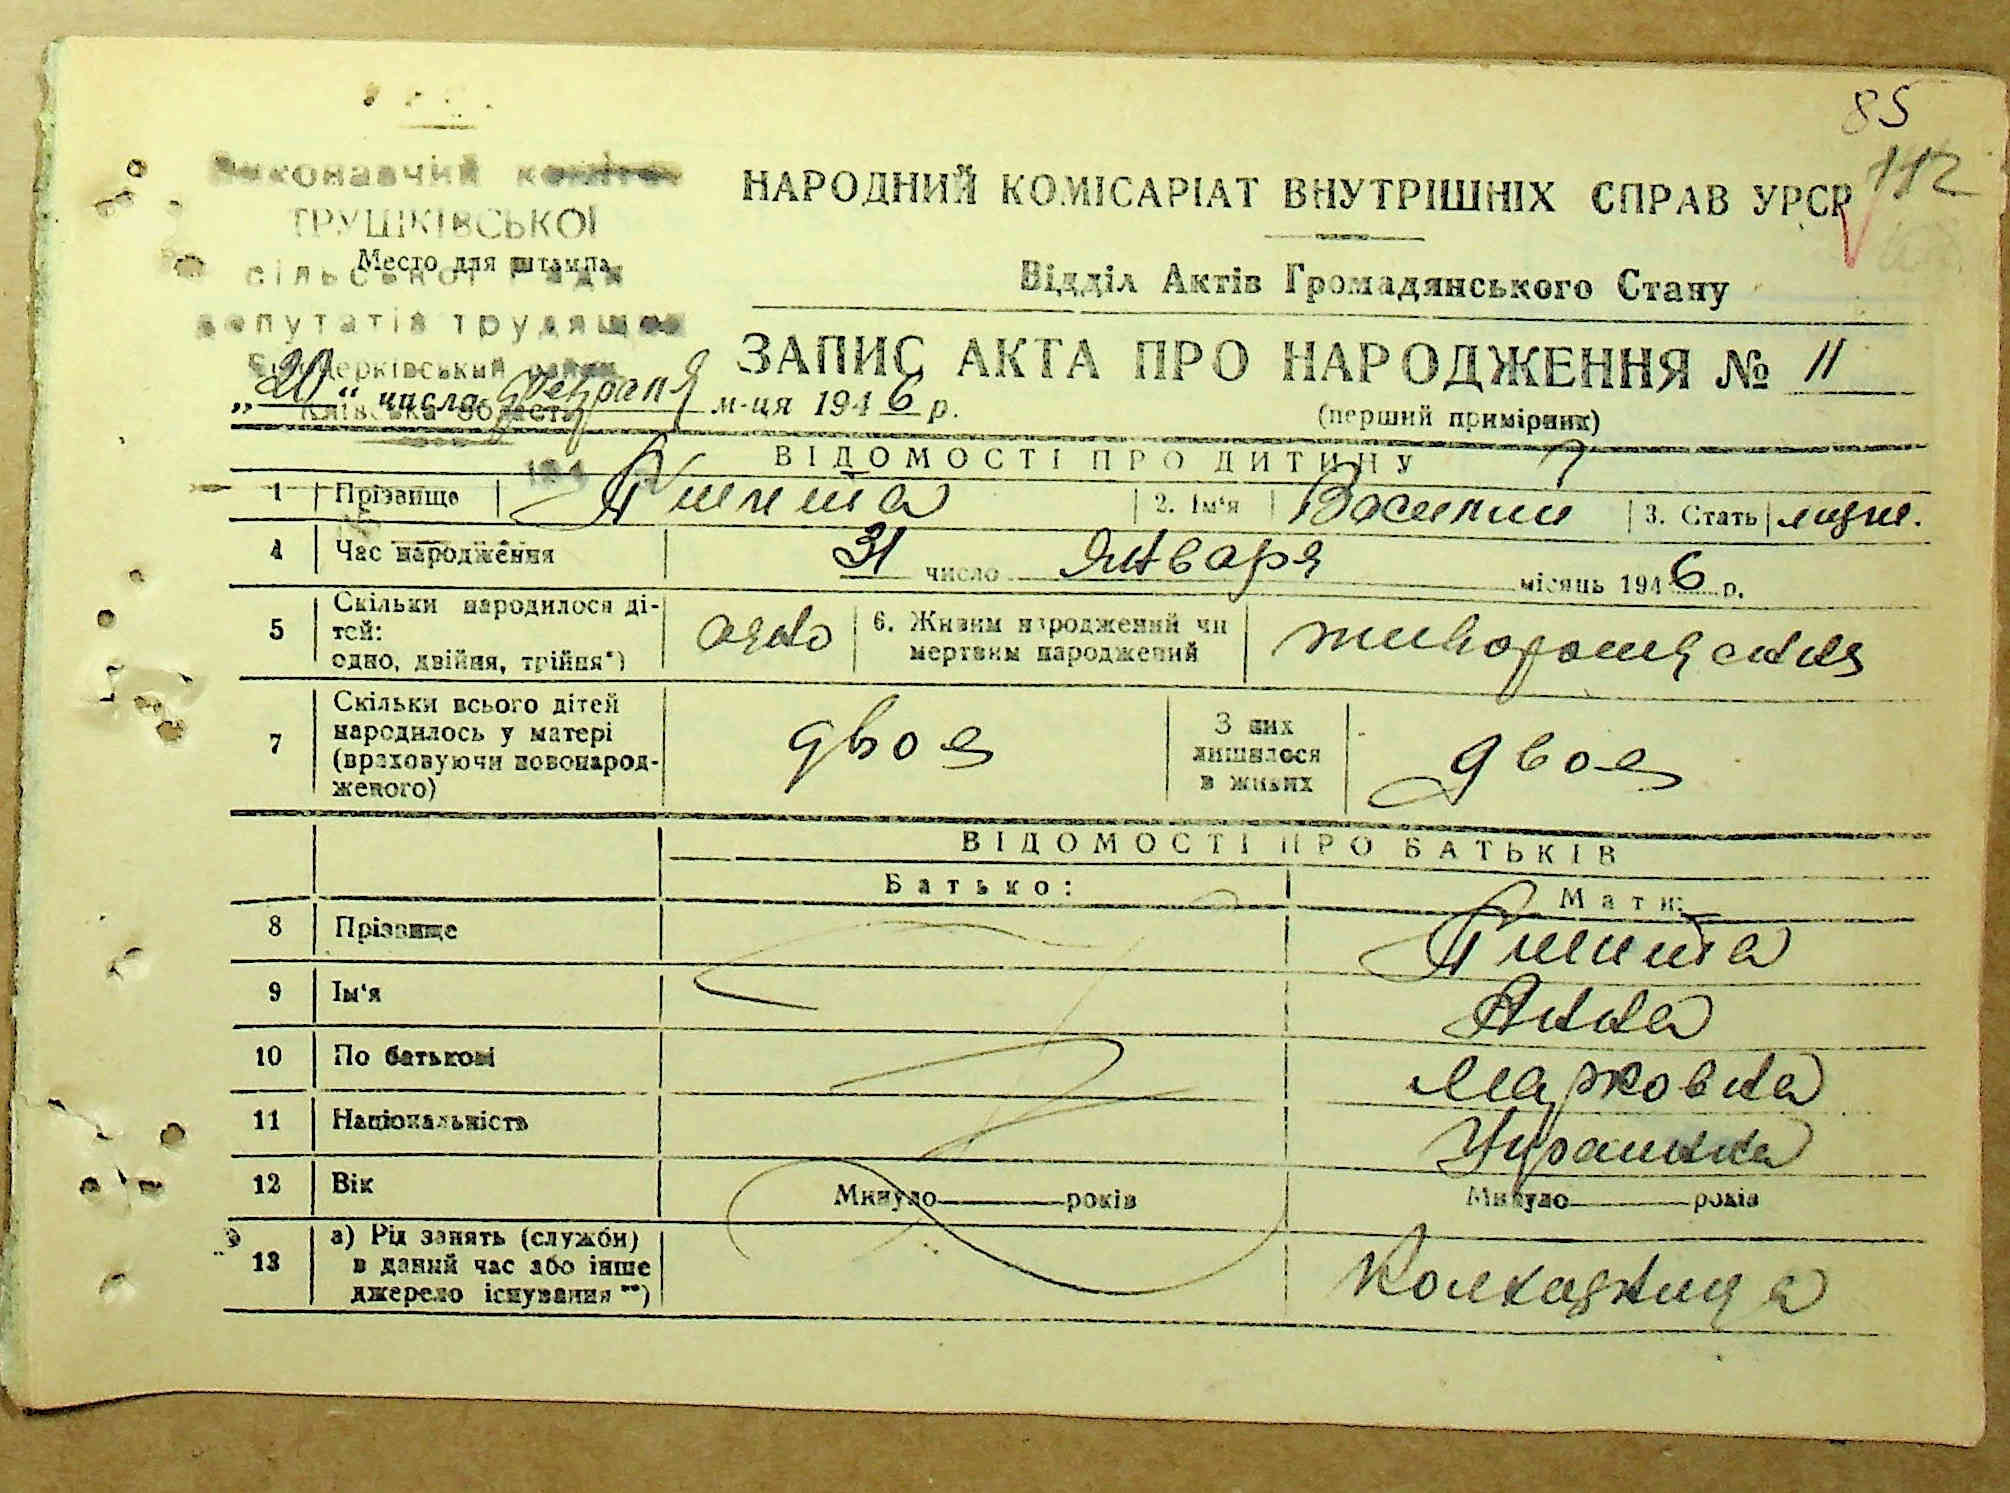 85
112
Виконавчий комітет
ТРУШКІВСЬКОЇ
Место для штампа
сільської Ради
депутатів трудящих
Білоцерківський район
Київська область
194
НАРОДНИЙ КОМІСАРІАТ ВНУТРІШНІХ СПРАВ УРСР
Відділ Актів Громадянського Стану
ЗАПИС АКТА ПРО НАРОДЖЕННЯ № 11
„20" числа февраля м-ця 1946 р.
(перший примірник)
ВІДОМОСТІ ПРО ДИТИНУ
1 Прізвище Пшита 2. Ім'я Василий 3. Стать мужс.
4 Час народження 31 число Января місяць 1946 р.
5 Скільки народилося ді-
тей:
одно, двійня, трійня*) одно 6. Живим народжений чи
мертвим народжений живорождення
7 Скільки всього дітей
народилось у матері
(враховуючи новонарод-
женого) двое З них
лишилося
в живих двое
ВІДОМОСТІ ПРО БАТЬКІВ
Батько: Мати:
8 Прізвище Пшита
9 Ім'я Анна
10 По батькові Марковна
11 Національність Украинка
12 Вік Минуло років Минуло років
13 а) Рід занять (служби)
в даний час або інше
джерело існування **) Колхозница